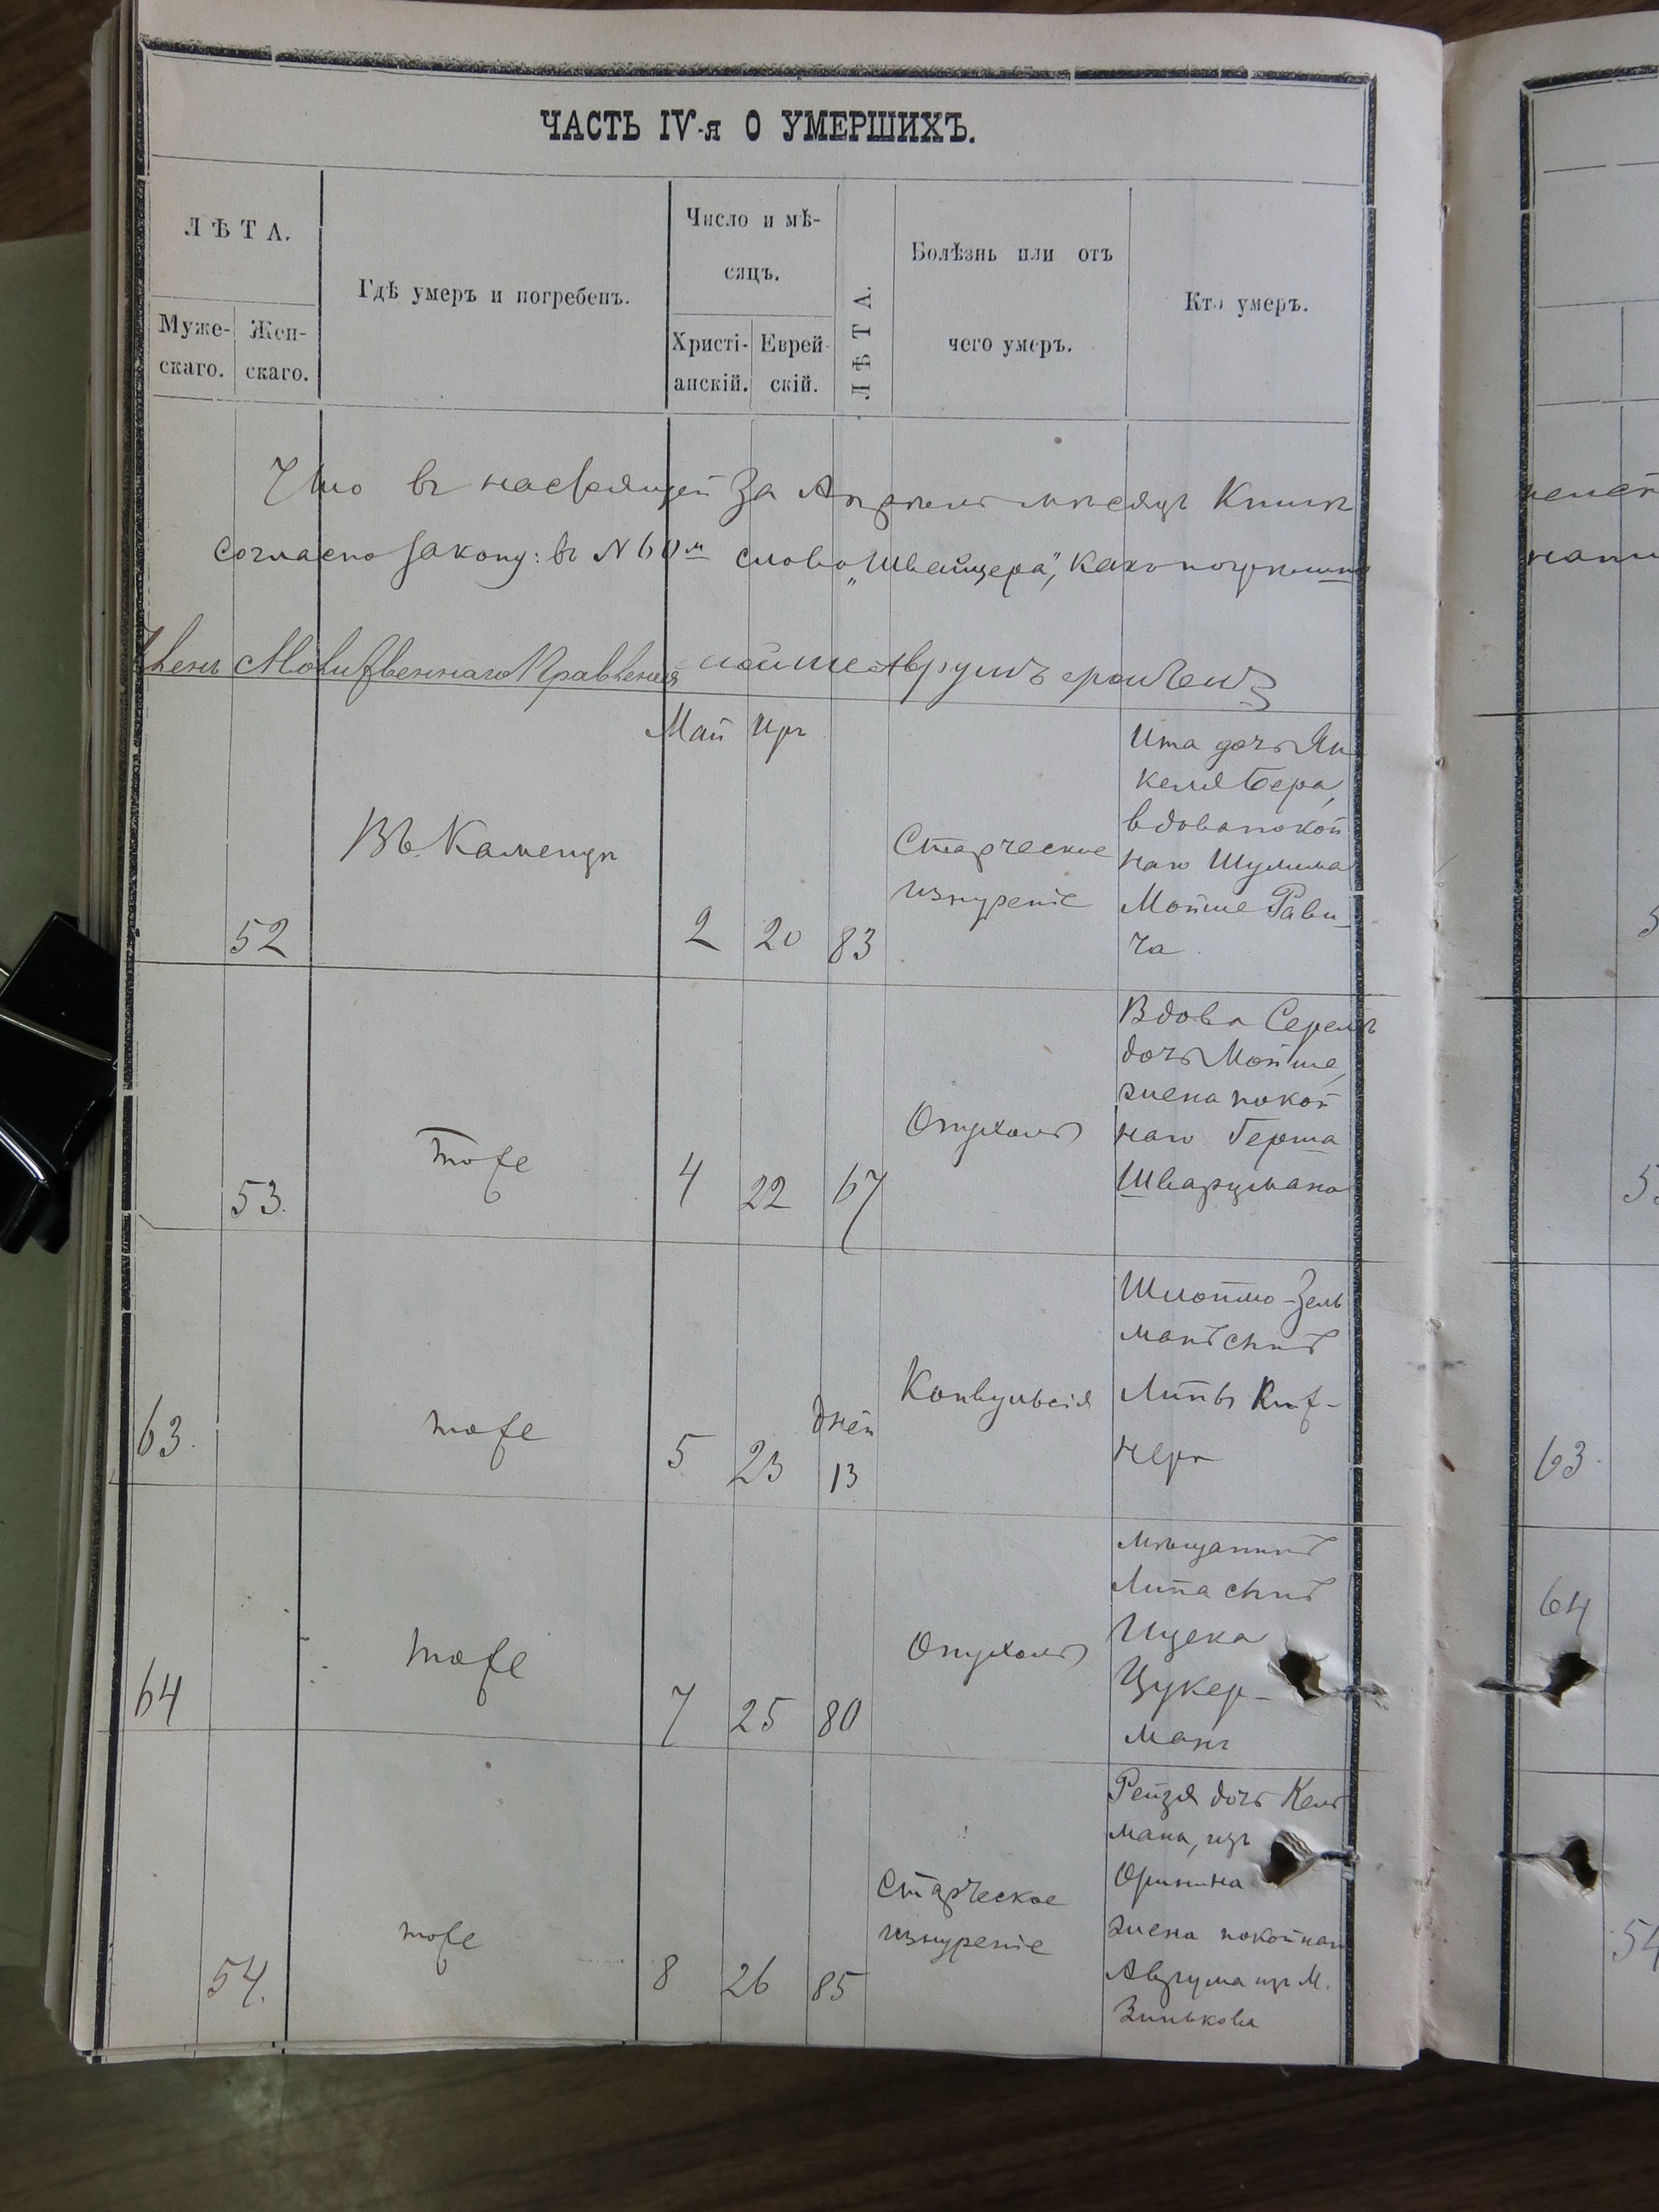 ЧАСТЬ IV-я О УМЕРШИХЪ.
ЛѢТА.
Муже-
скаго.
Жен-
скаго.
Гдѣ умеръ и погребенъ.
Число и мѣ-
сяцъ.
Христі-
анскій.
Еврей-
скій.
ЛѢТА.
Болѣзнь или отъ
чего умеръ.
Кто умеръ.
Что въ настоящей за Апрѣль мѣсяцъ Книгѣ
согласно закону: въ N 60м слово „Швейцера",
Членъ Молитвенного Правленія
Май Иръ
52
Въ Каменцѣ
2 20 83
Старческое
изнуреніе
Ита дочь Ян
келя Бера,
вдова покой
наго Шулима
Мойше Рави-
ча
53.
тоже
4 22 67
Опухоль
Вдова Серель
дочь Мойше,
жена покой
наго Герша
Шварцмана
63.
тоже
5 23
дней
13
Конвульсія
Шлойма-Зель
манъ сынъ
Липы
нера
64
тоже
7 25 80
Опухоль
мѣщанинъ
Липа сынъ
Ицека
Цукер-
манъ
54.
тоже
8 26 85
Старческое
изнуреніе
Рейзя дочь Кель
мана, изъ
Оринина
жена покойнаго
Аврума изъ М.
Зинькова
63.
64
54